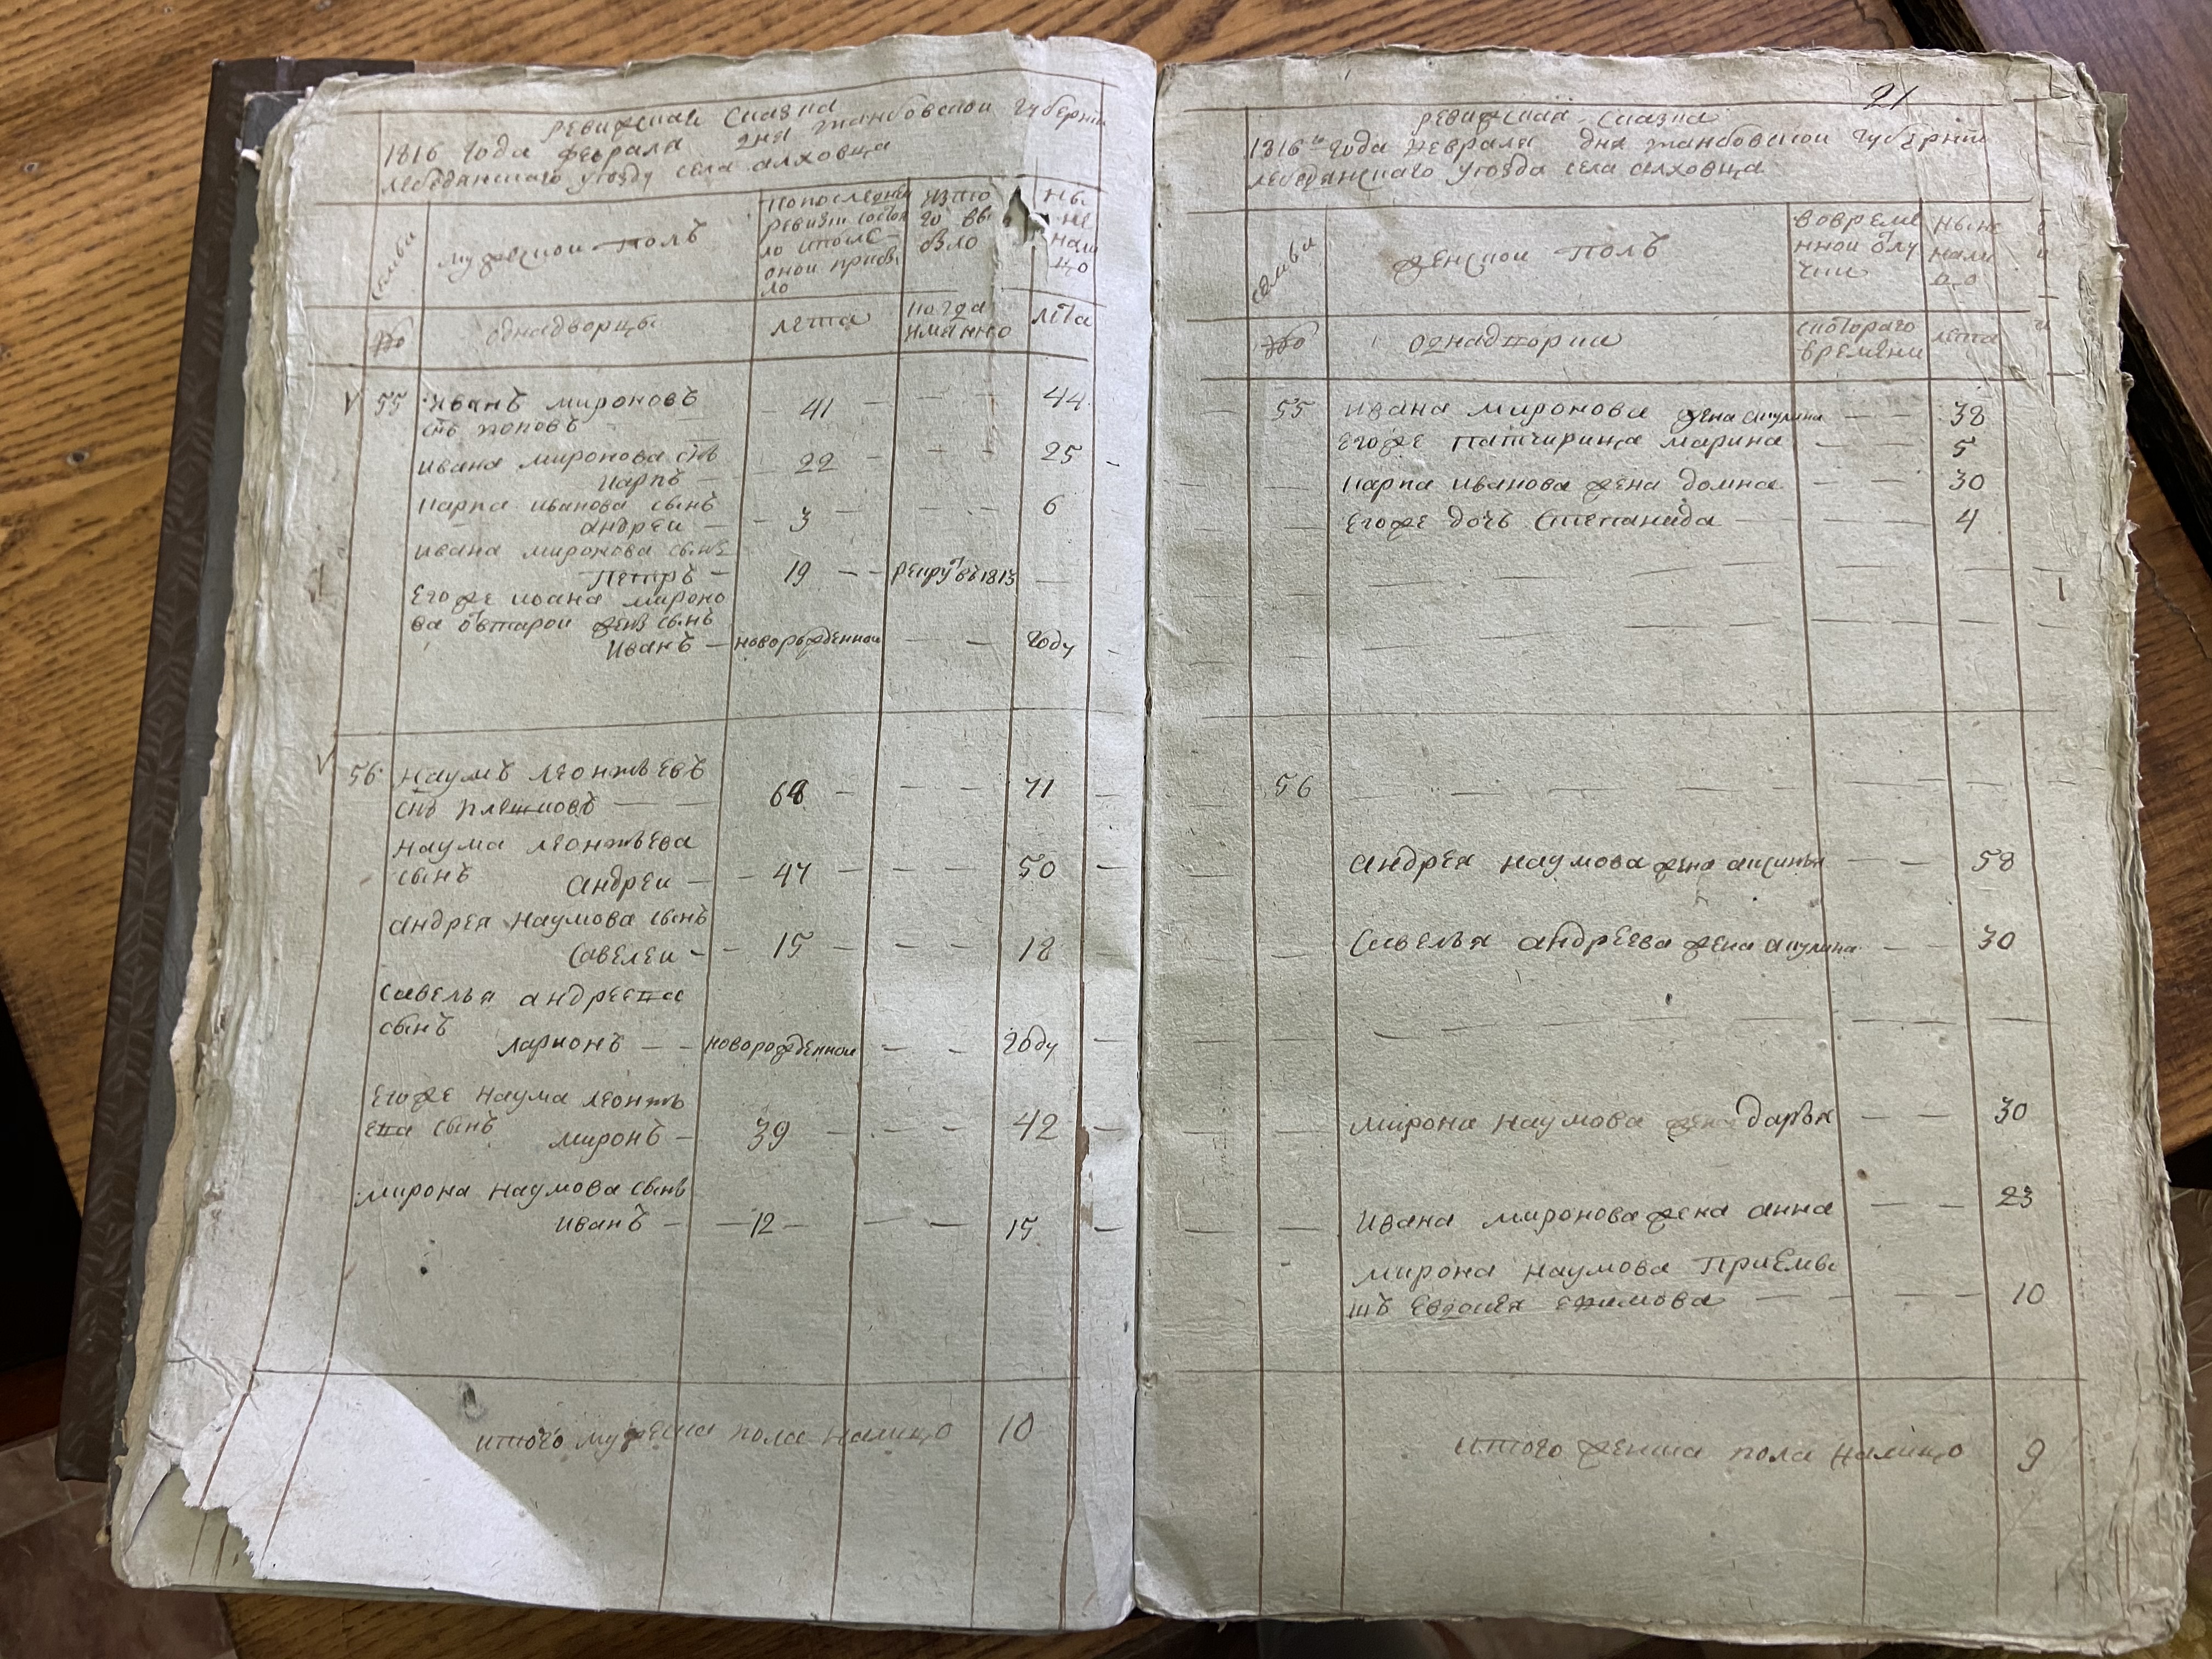 ревижская сказка
1816 года февраля дня танбовской губерни
лебедянского уезду села алховца
семьи
мужеской полъ
попоследней
ревизи состоя
ло ипосле
оной прибы
ло
изто
го вы
было
ны
не
нали
цо
№
однадворцы
лета
когда
имянно
лета
55 иванъ мироновъ
снъ поповъ
41
44
ивана миронова снъ
карпъ
22
25
карпа иванова сынъ
андреи
3
6
ивана миронова сынъ
петръ
19
рекрутъ в 1813
егоже ивана мироно
ва отвтарои жены сынъ
иванъ
новорожденнои
году
56 наумъ леонтьевъ
снъ плешковъ
68
71
наума леонтьева
сынъ андреи
47
50
андрея наумова сынъ
савелеи
15
18
савелья андреева
сынъ
ларионъ
новорожденнои
году
егоже наума леонть
ева сынъ миронъ
39
42
мирона наумова сынъ
иванъ
12
15
итого мужеска пола налицо 10
21
ревижская сказка
1816го года февраля дня танбовскои губерни
лебедянского уезда села алховца
семьи
женскои полъ
вовреме
ннои отлу
чки
ныне
нали
цо
№
однадворки
скотораго
времени
лета
55 ивана миронова жена акулина 38
егоже патчирица марина 5
карпа иванова жена домна 30
егоже дочь степанида 4
56
андрея наумова жена аксинья 58
савелья андреева жена акулина 30
мирона наумова жена дарья 30
ивана миронова жена анна 23
мирона наумова приемы
шъ евдокея екимова 10
итого женска пола налицо 9